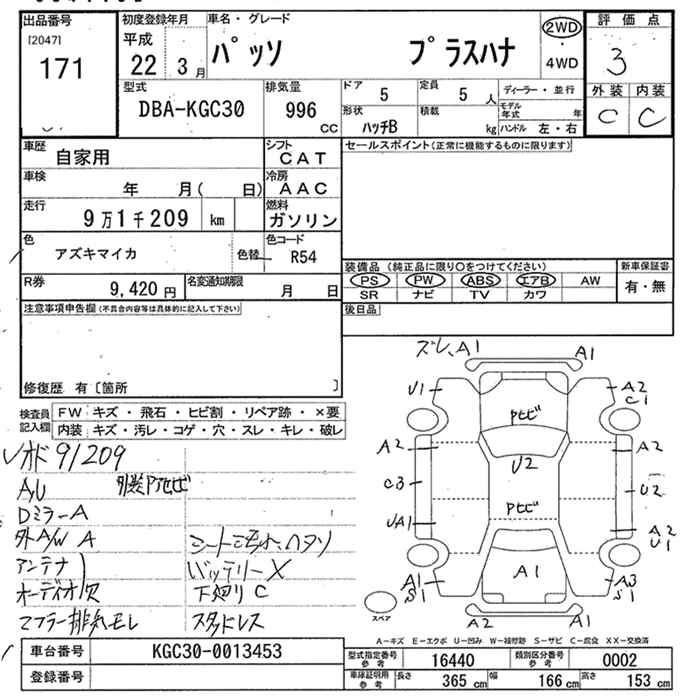 出品番号
[2047]
171
初度登録年月
平成
22 3月
車名・グレード
パッソ プラスハナ
2WD
・
4WD
評価点
3
外装 内装
C C
型式
DBA-KGC30
排気量
996
CC
ドア
5
定員
5 人
ディーラー・並行
形状
ハッチB
積載
kg
モデル年式 年
ハンドル 左・右
車歴
自家用
シフト
CAT
車検
年 月( 日)
冷房
AAC
走行
9万1千209 km
燃料
ガソリン
色
アズキマイカ
色替
色コード
R54
R券
9,420 円
名変通知期限
月 日
セールスポイント(正常に機能するものに限ります)
装備品 (純正品に限り○をつけてください)
PS PW ABS エアB AW
SR ナビ TV カワ
新車保証書
有・無
後日品
注意事項申告欄(不具合内容等は具体的に記入して下さい)
修復歴 有〔箇所 〕
検査員記入欄
FW キズ・飛石・ヒビ割・リペア跡・×要
内装 キズ・汚レ・コゲ・穴・スレ・キレ・破レ
91209
A,U
Dミラー A
外A/W A
アンテナ
オーディオ欠
マフラー排気モレ
バッテリー X
下廻り C
スタッドレス
ズレ、A1
A1
U1
A2
C1
Pトビ
A2
U2
A2
C3
U2
Pトビ
UA1
A2
U1
A1
S1
A1
A3
S1
スペア
A2
A1
A-キズ E-エクボ U-凹み W-補修跡 S-サビ C-腐食 XX-交換済
車台番号
KGC30-0013453
登録番号
型式指定番号
参考
16440
類別区分番号
参考
0002
車庫証明用
参考
長さ 365 cm 幅 166 cm 高さ 153 cm